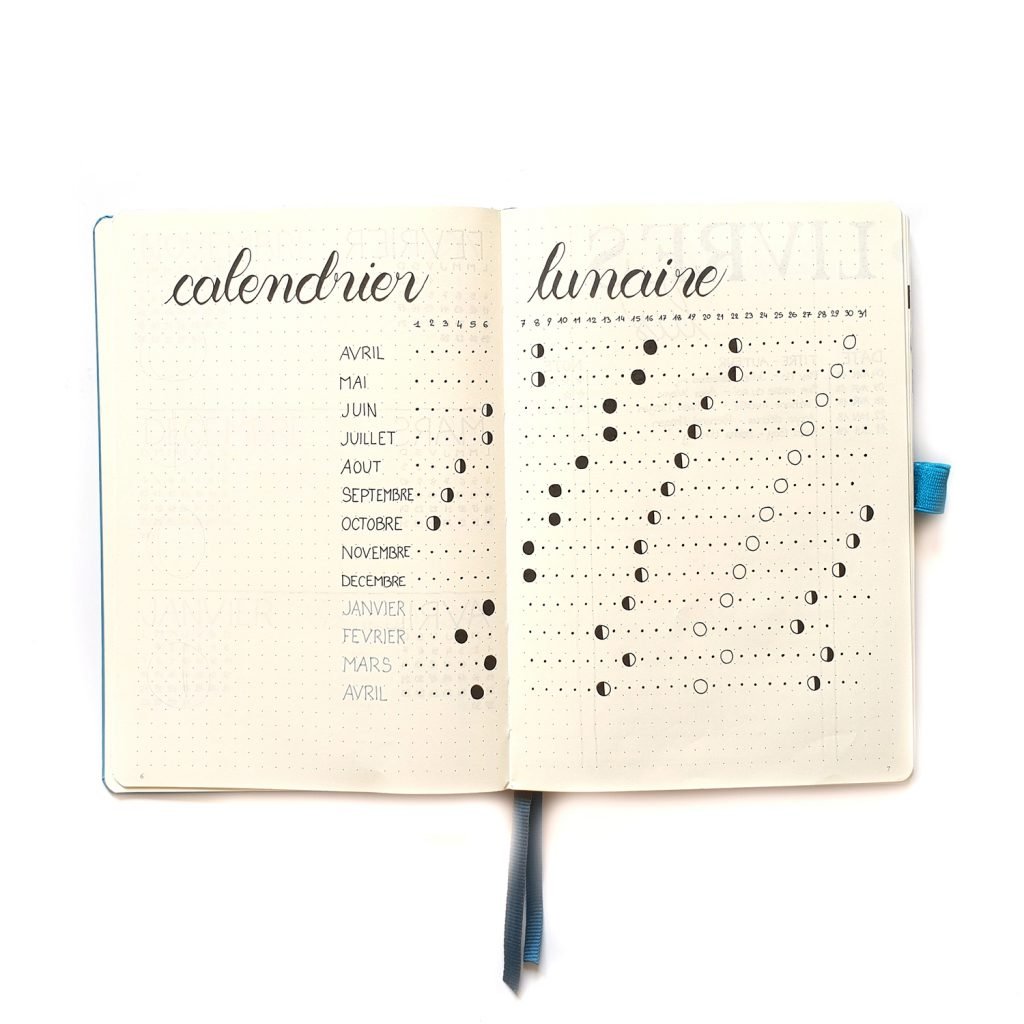 calendrier lunaire
1 2 3 4 5 6 7 8 9 10 11 12 13 14 15 16 17 18 19 20 21 22 23 24 25 26 27 28 29 30 31
AVRIL
MAI
JUIN
JUILLET
AOUT
SEPTEMBRE
OCTOBRE
NOVEMBRE
DECEMBRE
JANVIER
FEVRIER
MARS
AVRIL
6 7